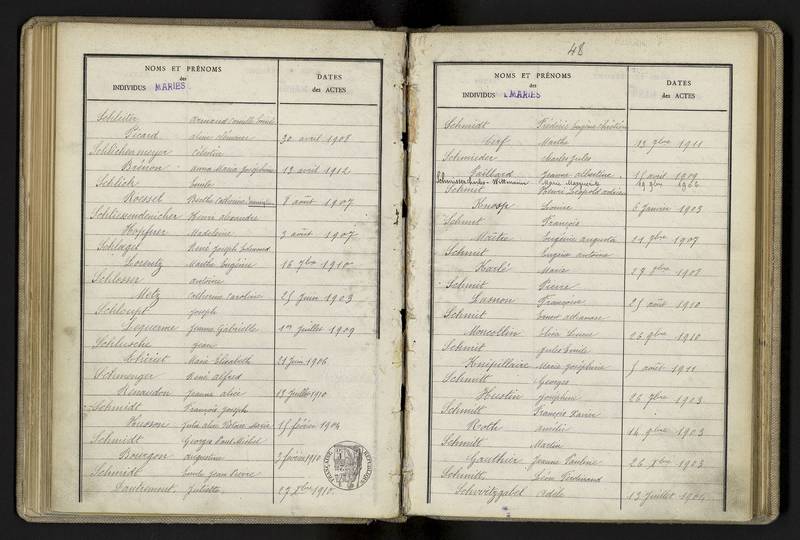 NOMS ET PRÉNOMS
des
INDIVIDUS MARIES
DATES
des ACTES
Schleiter Armand Camille Émile
Picard Aline Clémence 30 avril 1908
Schlichenmeyer Célestin
Brénon Anna Maria Joséphine 13 avril 1912
Schlich Émile
Roesset Berthe Catherine 8 août 1907
Schliesendencher Henri Alexandre
Hoffner Madeleine 3 août 1907
Schlagel René Joseph Edmond
Lorentz Marthe Eugénie 16 7bre 1910
Schlosser Antoine
Metz Catherine Caroline 25 juin 1903
Schloupt Joseph
Lequerme Jeanne Gabrielle 1er juillet 1909
Schlusche Jean
Schirist Marie Elisabeth 21 juin 1906
Schmenger René Alfred
Renaudon Jeanne Alice 13 juillet 1910
Schmidt François Joseph
Husson Julie Alice 15 février 1904
Schmidt Georges Paul Michel
Bourgon Augustine 3 février 1910
Schmidt Émile Jean Pierre
Dautremont Juliette 27 Xbre 1910
RÉPUBLIQUE FRANÇAISE
48
NOMS ET PRÉNOMS
des
INDIVIDUS MARIES
DATES
des ACTES
Schmidt Frédéric Eugène Christian
Cerf Marthe 13 9bre 1911
Schmieder Charles Jules
Gaillard Jeanne Albertine 15 avril 1909
Wittmann Marie Marguerite 19 9bre
Schmit Léopold
Knosp Louise 6 janvier 1903
Schmit François
Maître Eugénie Augusta 11 9bre 1907
Schmit Eugène Antoine
Karlé Marie 27 8bre 1908
Schmit Pierre
Lasnon Françoise 25 août 1910
Schmit Ernest Athanase
Marcollin Elisa Louise 25 9bre 1910
Schmit Jules Émile
Knipillaire Marie Joséphine 5 août 1911
Schmitt Georges
Hustin Joséphine 26 7bre 1903
Schmitt François Xavier
Roth Amélie 14 9bre 1903
Schmitt Martin
Gauthier Jeanne Pauline 26 Xbre 1903
Schmitt Léon Ferdinand
Schvoitzgabel Adèle 13 juillet 1904